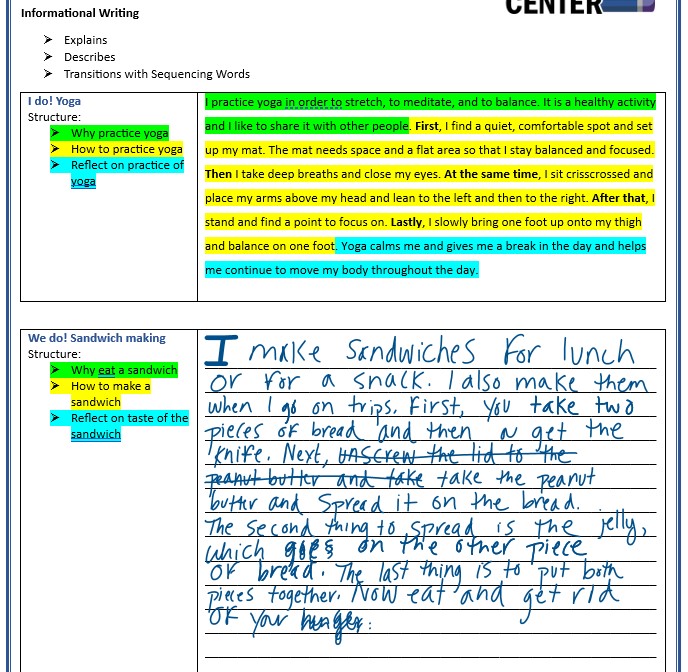 CENTER
Informational Writing
➢ Explains
➢ Describes
➢ Transitions with Sequencing Words
I do! Yoga
Structure:
➢ Why practice yoga
➢ How to practice yoga
➢ Reflect on practice of
yoga
I practice yoga in order to stretch, to meditate, and to balance. It is a healthy activity
and I like to share it with other people. First, I find a quiet, comfortable spot and set
up my mat. The mat needs space and a flat area so that I stay balanced and focused.
Then I take deep breaths and close my eyes. At the same time, I sit crisscrossed and
place my arms above my head and lean to the left and then to the right. After that, I
stand and find a point to focus on. Lastly, I slowly bring one foot up onto my thigh
and balance on one foot. Yoga calms me and gives me a break in the day and helps
me continue to move my body throughout the day.
We do! Sandwich making
Structure:
➢ Why eat a sandwich
➢ How to make a
sandwich
➢ Reflect on taste of the
sandwich
I make Sandwiches for lunch
or for a snack. I also make them
when I go on trips. First, you take two
pieces of bread and then get the
knife. Next, unscrew the lid to the
peanut butter and take take the peanut
butter and Spread it on the bread.
The second thing to spread is the jelly,
which goes on the other piece
of bread. The last thing is to put both
pieces together. Now eat and get rid
of your hunger.